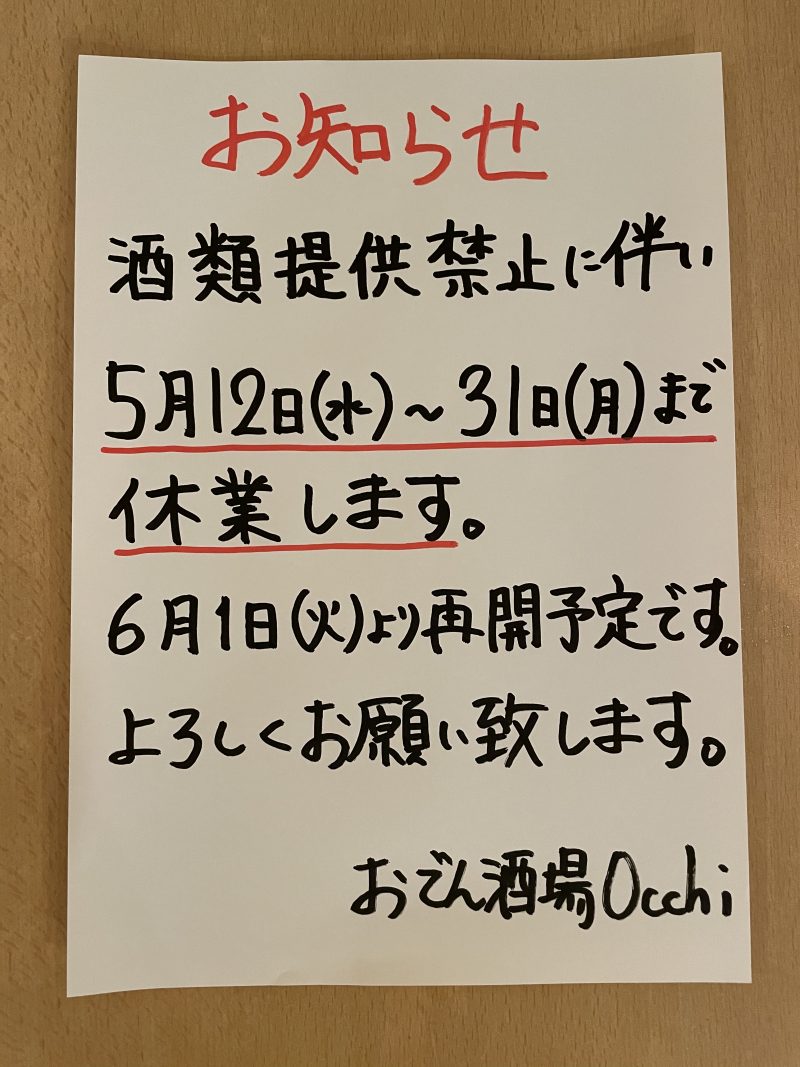 お知らせ
酒類提供禁止に伴い
5月12日(水)～31日(月)まで
休業します。
6月1日(火)より再開予定です。
よろしくお願い致します。
おでん酒場Occhi